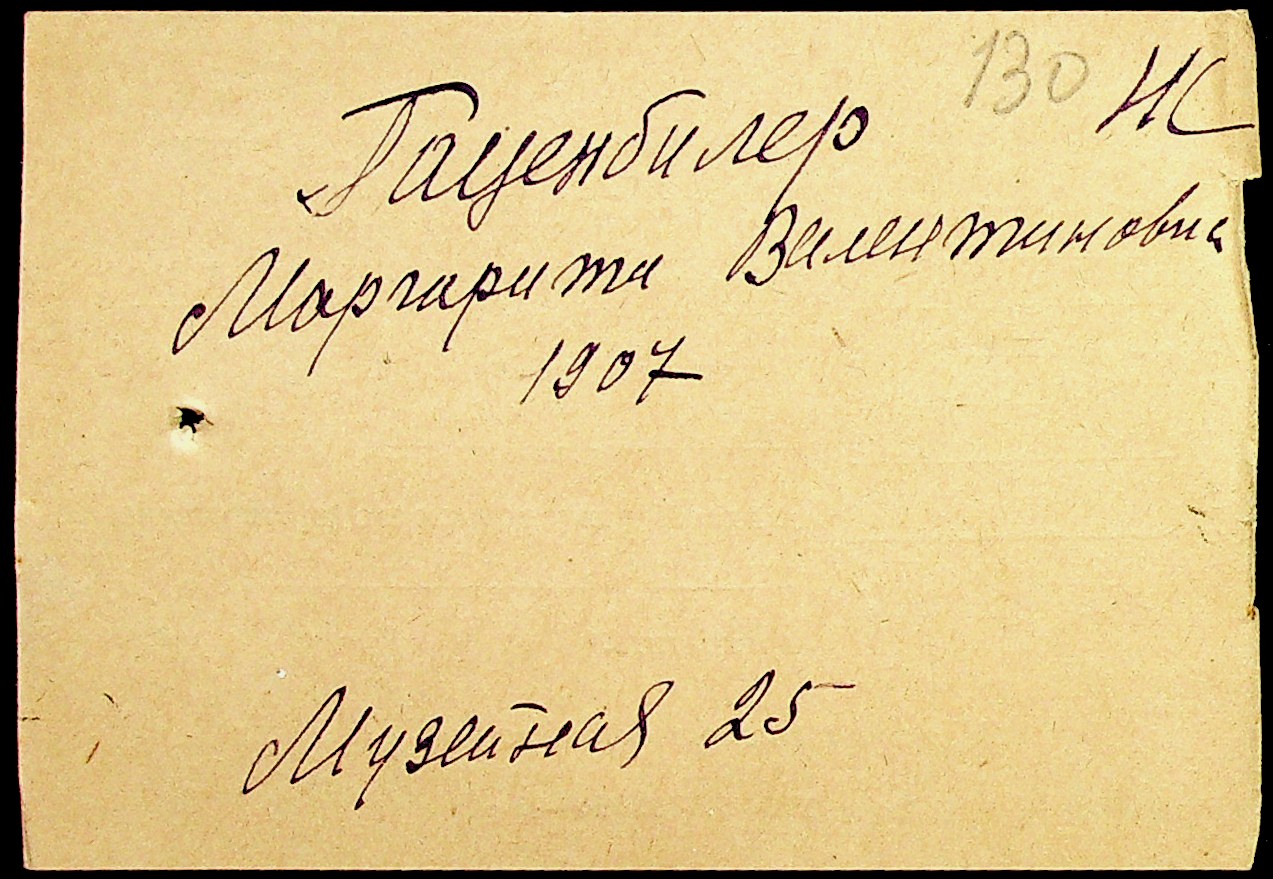 130 НС
Гаценбилер
Маргарита Валентиновна
1907
Музейная 25